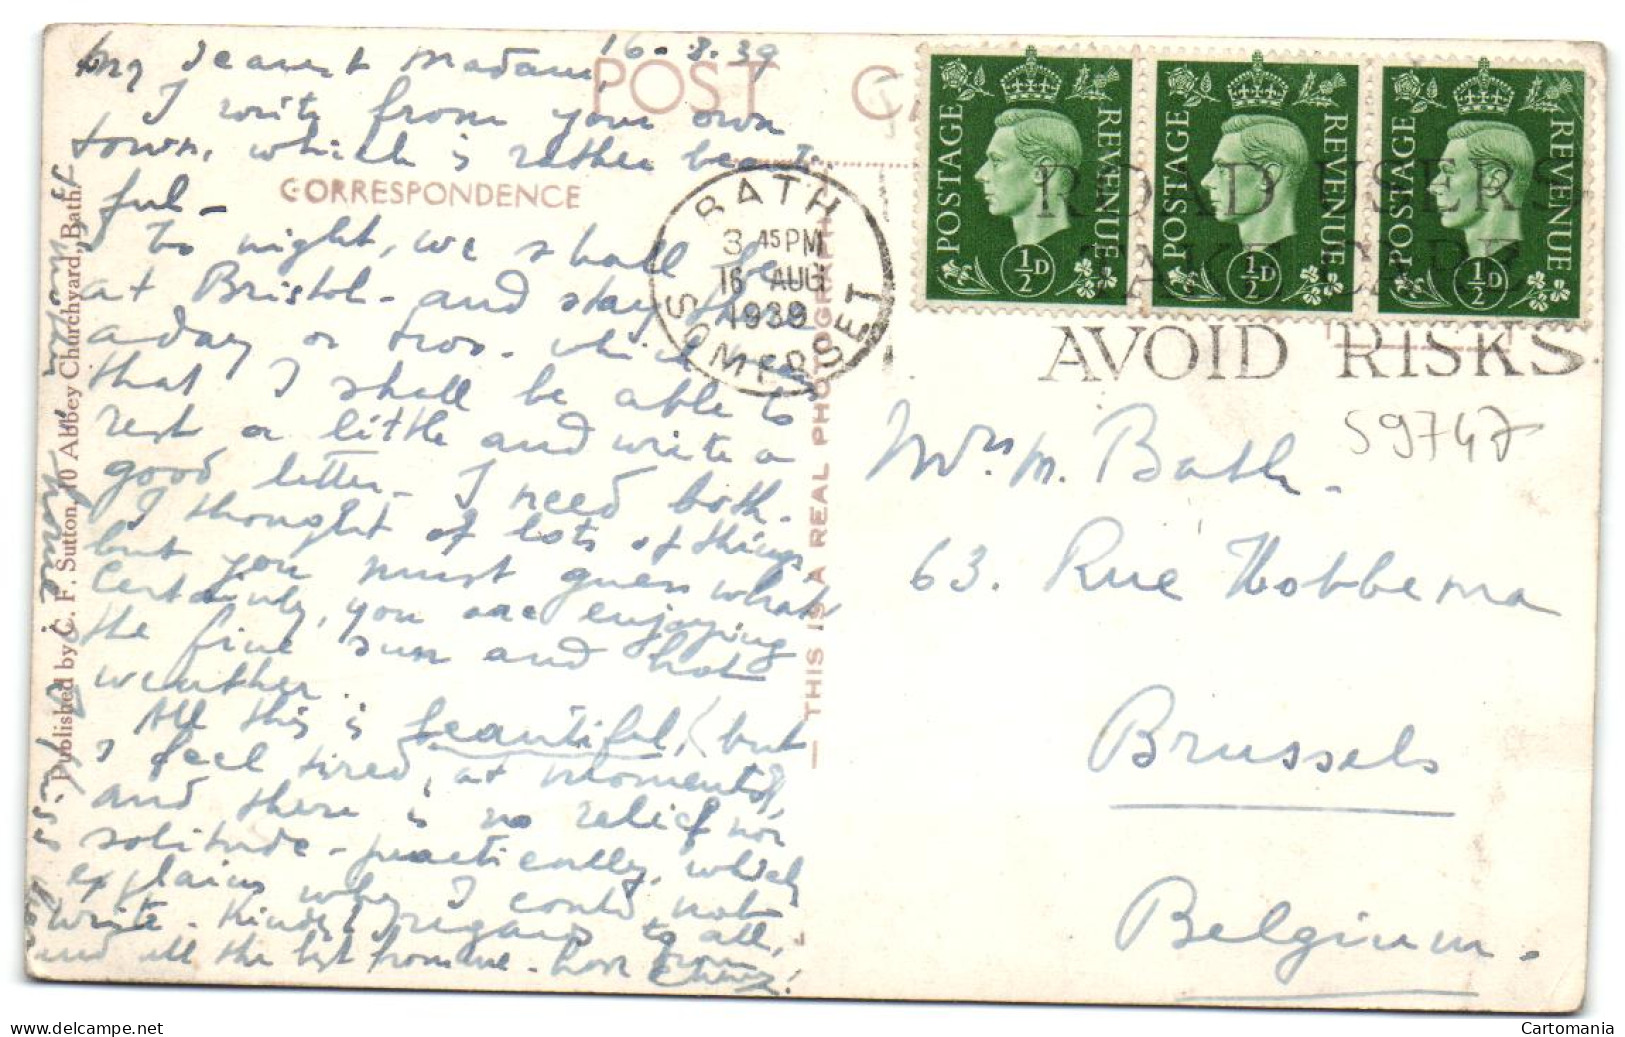 My dearest Madam, 16-8-39
I write from your own
town, which is rather beauti-
ful -
To night, we shall be
at Bristol - and stay there
a day or two - which means
that I shall be able to
rest a little and write a
good letter - I need both -
I thought of lots of things
but you must guess what
Certainly, you are enjoying
the fine sun and hot
weather
All this is beautiful, but
I feel tired, at moments,
and there is no relief nor
solitude - practically, which
explains why I could not
write - Kindest regards to all,
and all the best from me - love from
POST CA
CORRESPONDENCE
THIS IS A REAL PHOTOGRAPH
Published by C. F. Sutton, 10 Abbey Churchyard, Bath.
BATH
3 45 PM
16 AUG
1939
SOMERSET
POSTAGE REVENUE ½D
POSTAGE REVENUE ½D
POSTAGE REVENUE ½D
ROAD USERS
TAKE CARE
AVOID RISKS
59747
Mrs. M. Bath.
63. Rue Hobbema
Brussels
Belgium.
delcampe.net
Cartomania